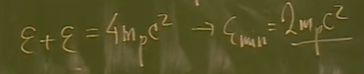 ε + ε = 4m_p c² → ε_min = 2m_p c²